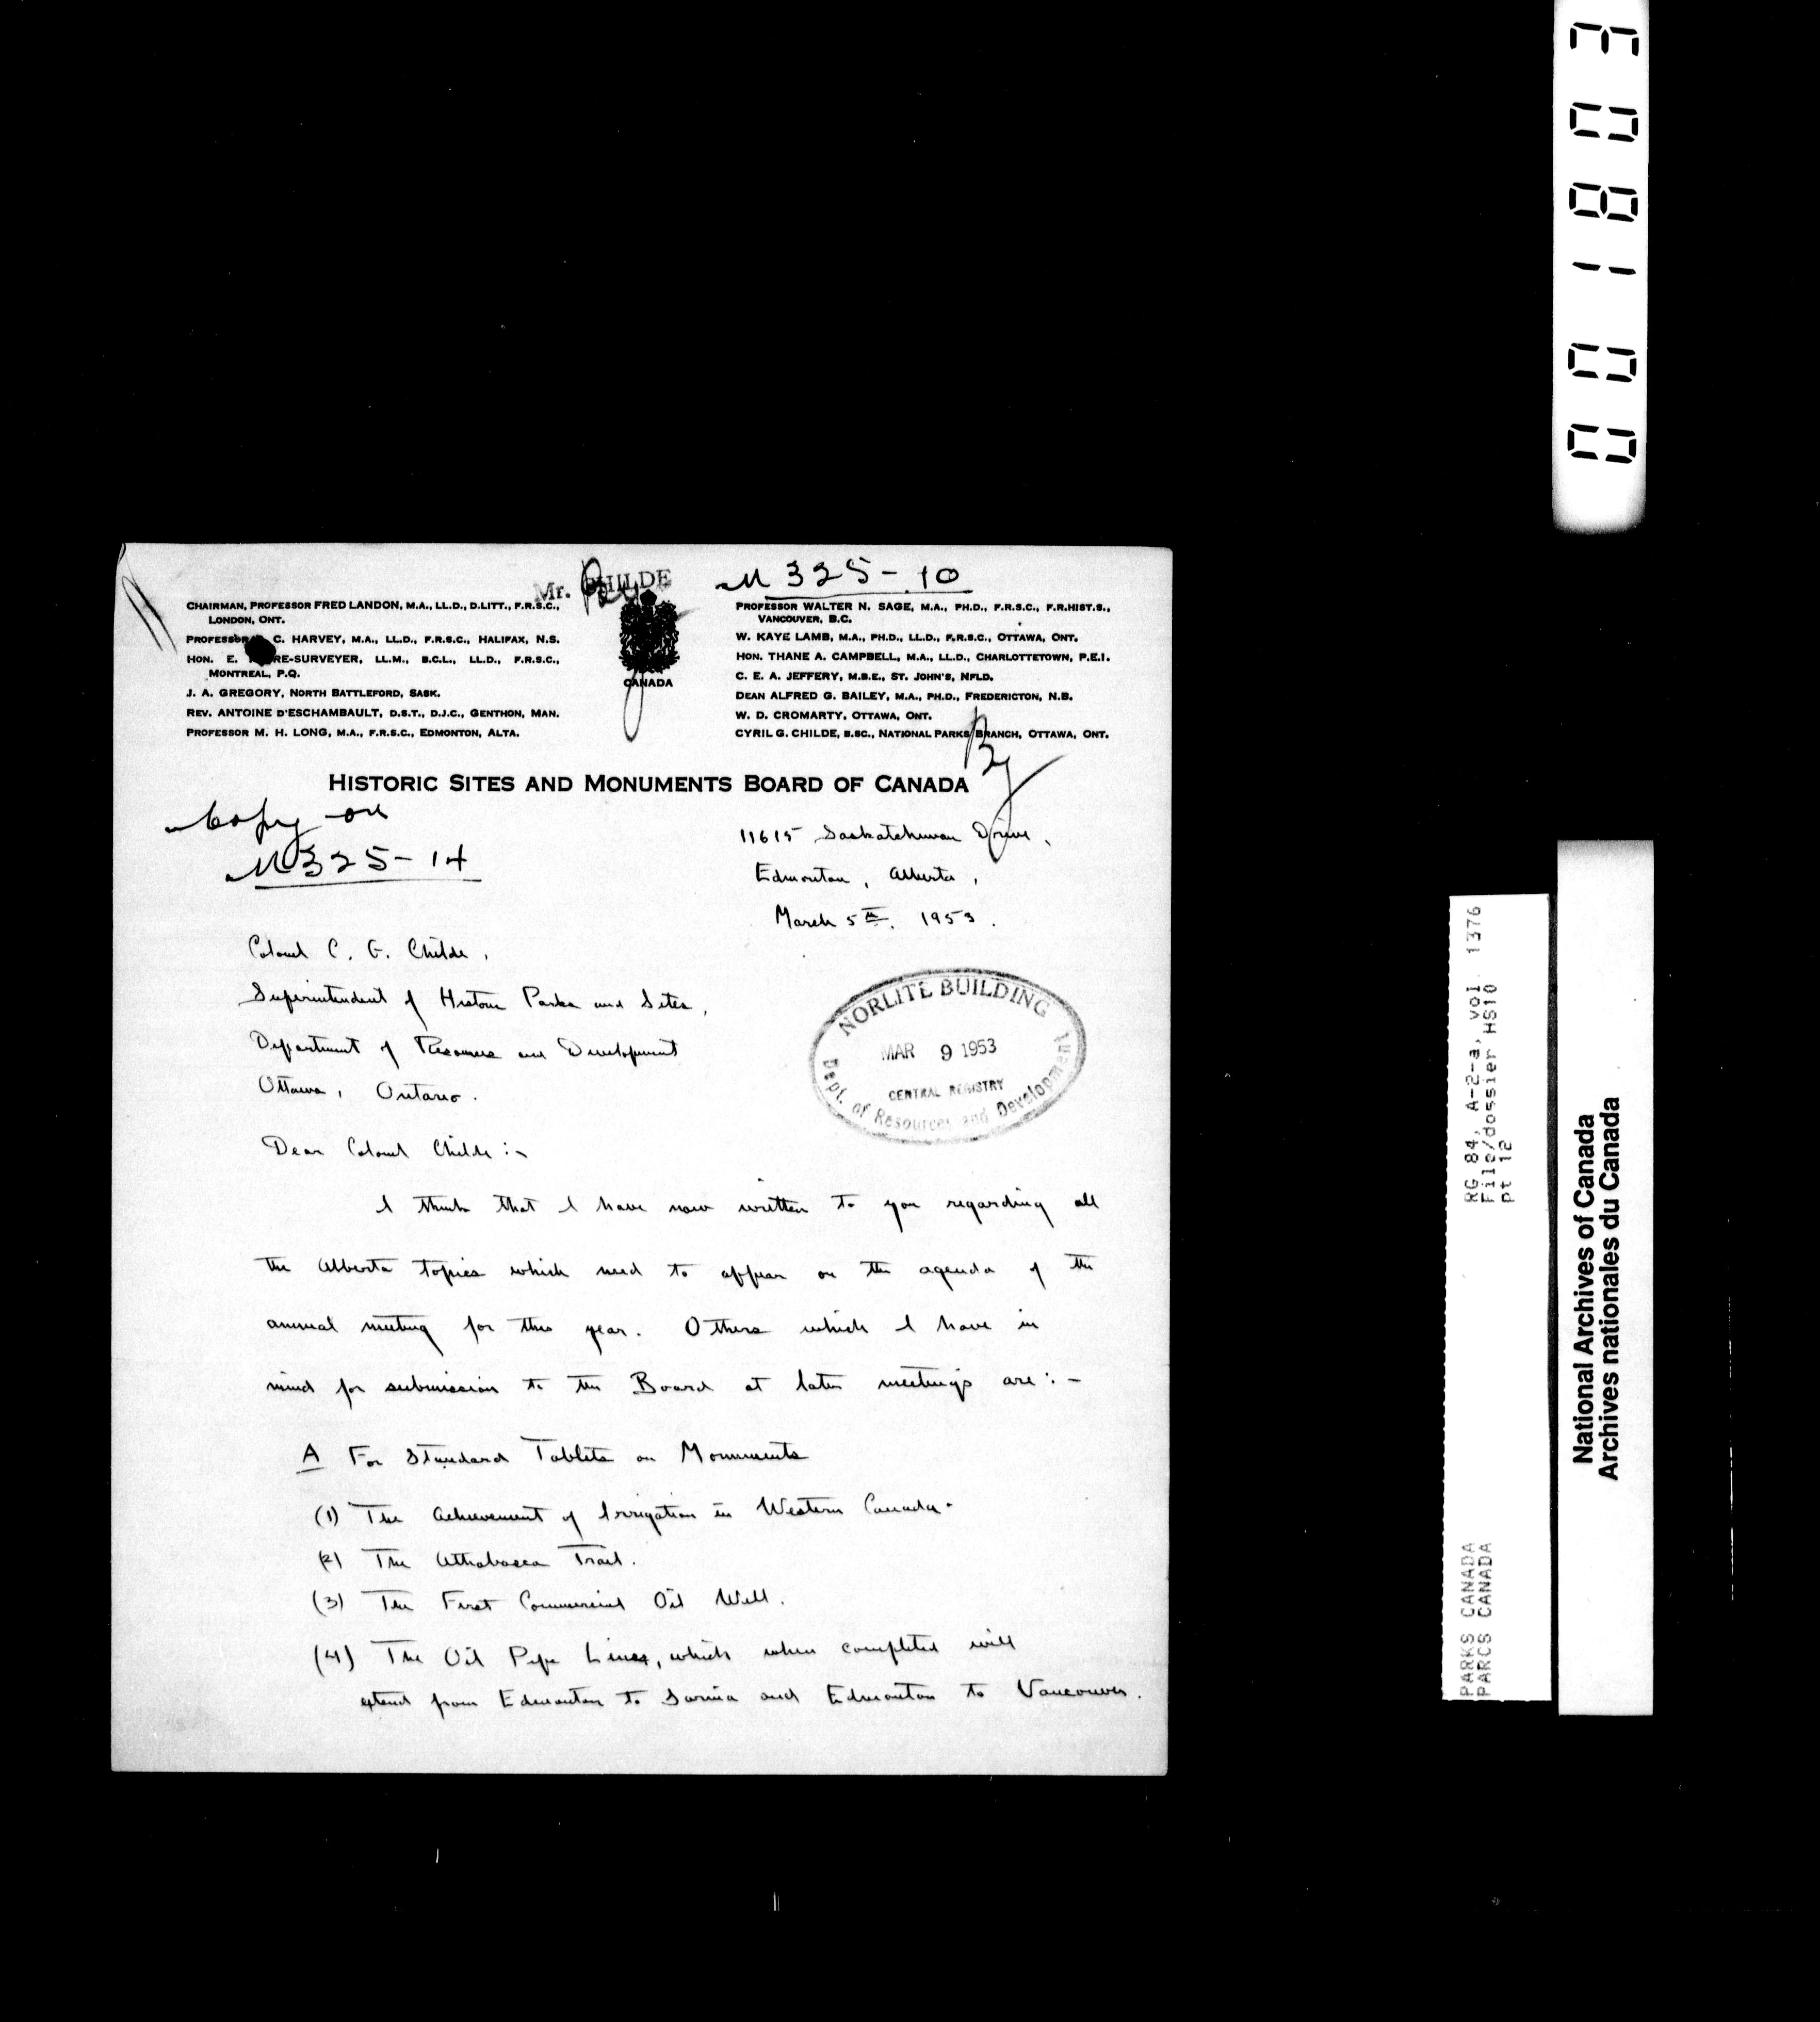 Mr. CHILDE
M 325-10
CHAIRMAN, PROFESSOR FRED LANDON, M.A., LL.D., D.LITT., F.R.S.C.,
LONDON, ONT.
PROFESSOR C. HARVEY, M.A., LL.D., F.R.S.C., HALIFAX, N.S.
HON. E. RE-SURVEYER, LL.M., B.C.L., LL.D., F.R.S.C.,
MONTREAL, P.Q.
J. A. GREGORY, NORTH BATTLEFORD, SASK.
REV. ANTOINE D'ESCHAMBAULT, D.S.T., D.J.C., GENTHON, MAN.
PROFESSOR M. H. LONG, M.A., F.R.S.C., EDMONTON, ALTA.
CANADA
PROFESSOR WALTER N. SAGE, M.A., PH.D., F.R.S.C., F.R.HIST.S.,
VANCOUVER, B.C.
W. KAYE LAMB, M.A., PH.D., LL.D., F.R.S.C., OTTAWA, ONT.
HON. THANE A. CAMPBELL, M.A., LL.D., CHARLOTTETOWN, P.E.I.
C. E. A. JEFFERY, M.B.E., ST. JOHN'S, NFLD.
DEAN ALFRED G. BAILEY, M.A., PH.D., FREDERICTON, N.B.
W. D. CROMARTY, OTTAWA, ONT.
CYRIL G. CHILDE, B.SC., NATIONAL PARKS BRANCH, OTTAWA, ONT.
HISTORIC SITES AND MONUMENTS BOARD OF CANADA
Copy on
M325-14
11615 Saskatchewan Drive,
Edmonton, Alberta,
March 5th. 1953.
Colonel C. G. Childe,
Superintendent of Historic Parks and Sites,
Department of Resources and Development
Ottawa, Ontario.
NORLITE BUILDING
MAR 9 1953
CENTRAL REGISTRY
Dept. of Resources and Development
Dear Colonel Childe:-
I think that I have now written to you regarding all
the Alberta topics which need to appear on the agenda of the
annual meeting for this year. Others which I have in
mind for submission to the Board at later meetings are:-
A For Standard Tablets on Monuments
(1) The Achievement of Irrigation in Western Canada.
(2) The Athabasca Trail.
(3) The First Commercial Oil Well.
(4) The Oil Pipe Lines, which when completed will
extend from Edmonton to Sarnia and Edmonton to Vancouver.
001803
RG 84, A-2-a, vol. 1376
File/dossier HS10
pt 12
PARKS CANADA
PARCS CANADA
National Archives of Canada
Archives nationales du Canada